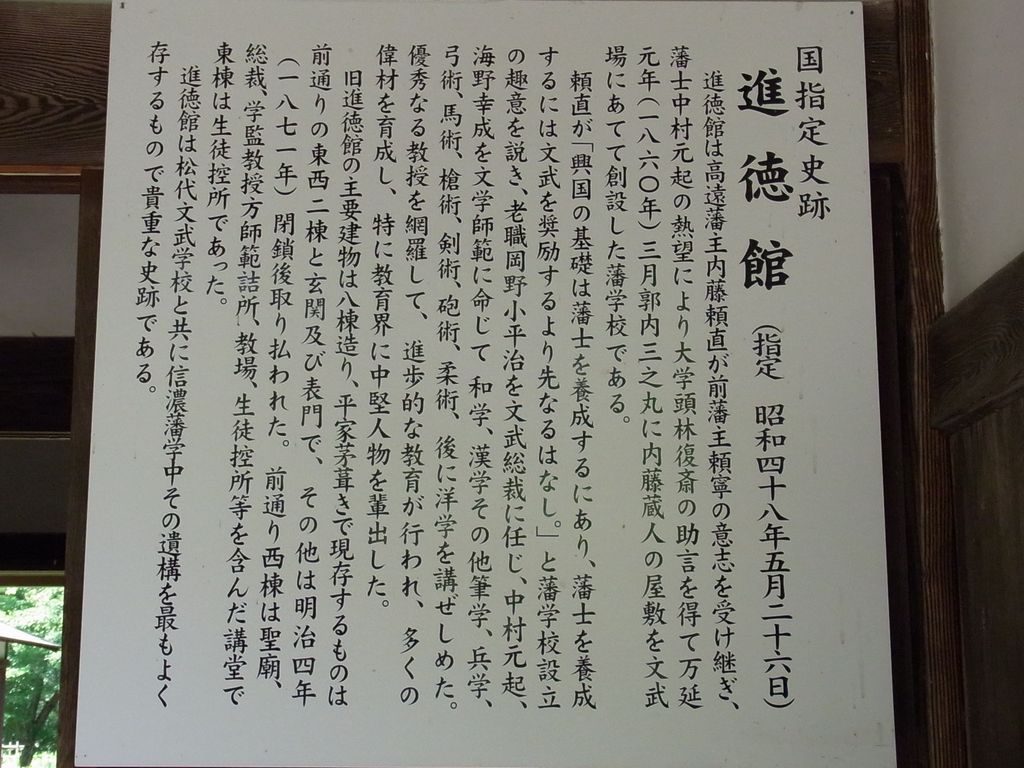 国指定史跡
進徳館 (指定 昭和四十八年五月二十六日)
進徳館は高遠藩主内藤頼直が前藩主頼寧の意志を受け継ぎ、
藩士中村元起の熱望により大学頭林復斎の助言を得て万延
元年(一八六〇年)三月郭内三之丸に内藤蔵人の屋敷を文武
場にあてて創設した藩学校である。
頼直が「興国の基礎は藩士を養成するにあり、藩士を養成
するには文武を奨励するより先なるはなし。」と藩学校設立
の趣意を説き、老職岡野小平治を文武総裁に任じ、中村元起、
海野幸成を文学師範に命じて 和学、漢学その他筆学、兵学、
弓術、馬術、槍術、剣術、砲術、柔術、後に洋学を講ぜしめた。
優秀なる教授を網羅して、進歩的な教育が行われ、多くの
偉材を育成し、特に教育界に中堅人物を輩出した。
旧進徳館の主要建物は八棟造り、平家茅葺きで現存するものは
前通りの東西二棟と玄関及び表門で、その他は明治四年
(一八七一年)閉鎖後取り払われた。前通り西棟は聖廟、
総裁、学監教授方師範詰所、教場、生徒控所等を含んだ講堂で
東棟は生徒控所であった。
進徳館は松代文武学校と共に信濃藩学中その遺構を最もよく
存するもので貴重な史跡である。